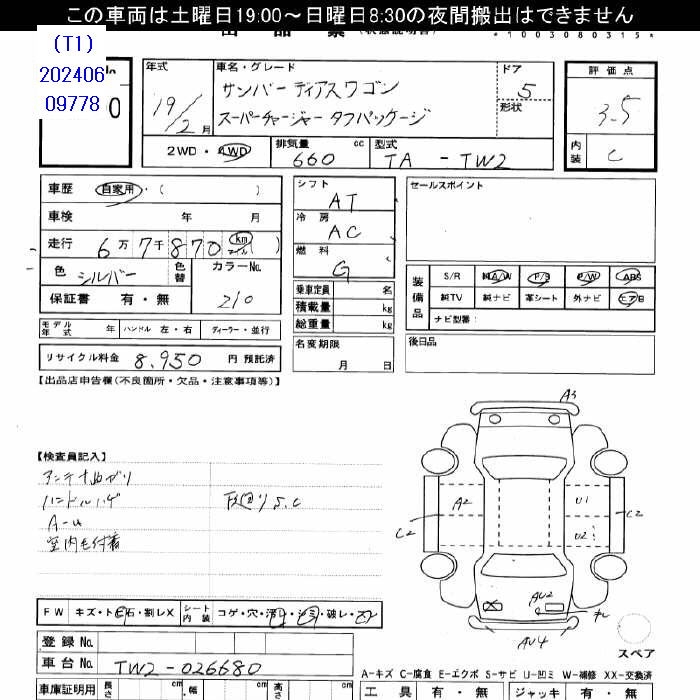 この車両は土曜日19:00～日曜日8:30の夜間搬出はできません
(T1)
202406
09778
No
0
*1003080315*
年式 19/2月
車名・グレード サンバー ディアスワゴン
スーパーチャージャー タフパッケージ
ドア 5
形状
評価点 3.5
内装 C
2WD・4WD
排気量 660 cc
型式 TA-TW2
車歴 自家用・( )
車検 年 月
走行 6万7千870 km
色 シルバー 色替
カラーNo. 210
保証書 有・無
シフト AT
冷房 AC
燃料 G
乗車定員 名
積載量 kg
総重量 kg
名変期限
月 日
セールスポイント
装備品 S/R 純A/W P/S P/W ABS
純TV 純ナビ 革シート 外ナビ エアB
ナビ型番:
後日品
モデル年式 年 ハンドル 左・右 ディーラー・並行
リサイクル料金 8,950 円 預託済
【出品店申告欄(不良箇所・欠品・注意事項等)】
【検査員記入】
ハンドルハゲ
下廻り S.C
室内毛付着
A3
A2
U1
U2
C2
C2
AU2
AU4
スペア
FW キズ・ト石・割レX シート内装 コゲ・穴・汚レ・シミ・破レ・スレ
登録No.
車台No. TW2-026680
A-キズ C-腐食 E-エクボ S-サビ U-凹ミ W-補修 XX-交換済
車庫証明用 長さ cm 幅 cm 高さ cm
工具 有・無 ジャッキ 有・無